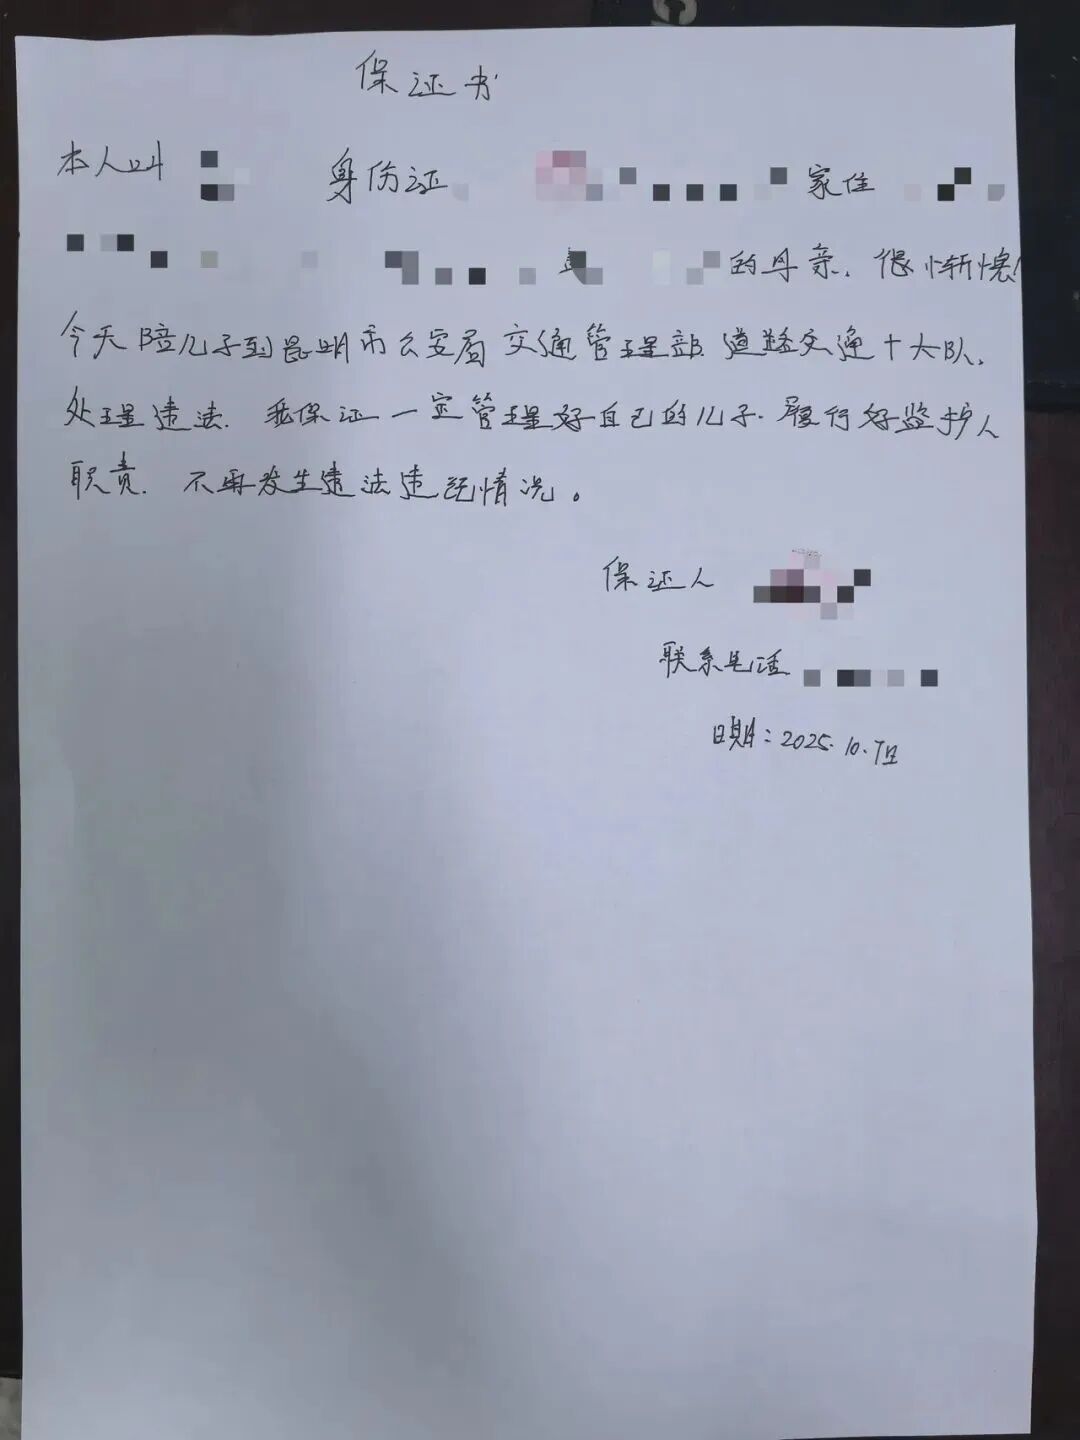 保证书
本人叫 身份证 家住
的母亲，很惭愧！
今天陪儿子到昆明市公安局交通管理部道路交通十大队，
处理违法．我保证一定管理好自己的儿子．履行好监护人
职责．不再发生违法违纪情况。
保证人
联系电话
日期：2025.10.7日